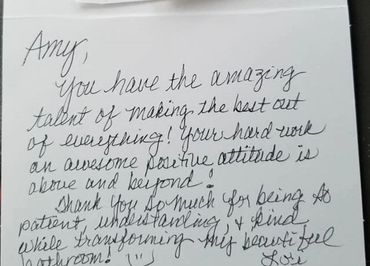 Amy,
You have the amazing
talent of making the best out
of everything! Your hard work
an awesome positive attitude is
above and beyond!
Thank you so much for being so
patient, understanding, & kind
while transforming my beautiful
bathroom! ")
Lori